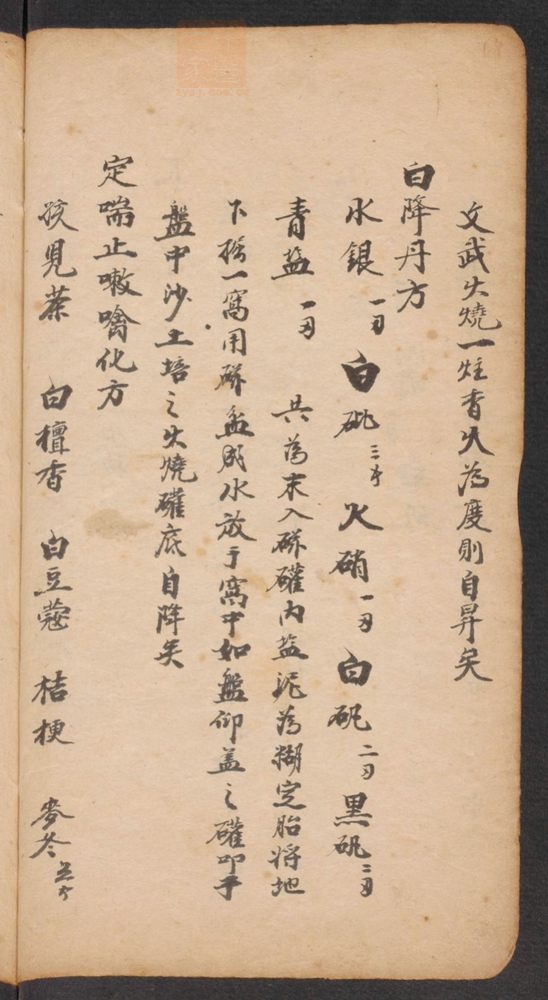 文武火燒一炷香火為度則自昇矣
白降丹方
水銀一刃 白砒三子 火硝一刃 白矾二刃 黑矾二刃
青盐一刃 共為末入硃礶內盐泥為糊定胎将地
下挖一窩用硃盆成水放于窩中如盤仰盖之礶叩于
盤中沙土培之火燒礶底自降矣
定喘止嗽噙化方
孩兒茶 白檀香 白豆蔻 桔梗 麥苳